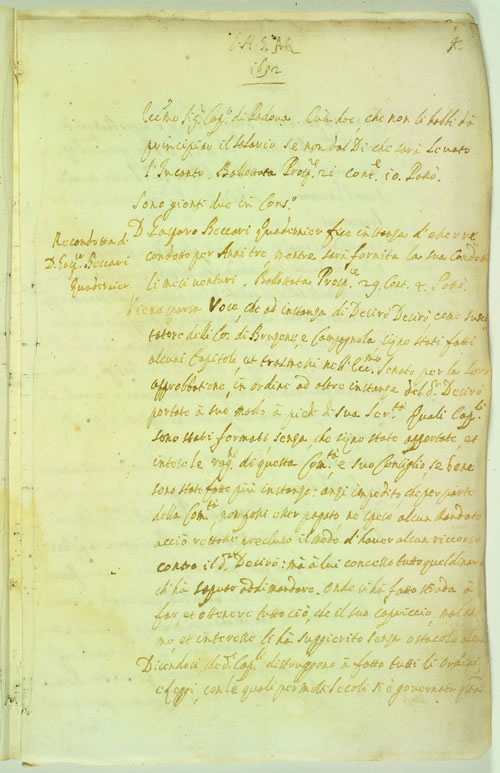 4.
1692
Ecc.mo Sig.r Cap.o di Padova. Con che, che non li habbi da
principiar il salario se non dal Di che sarà levato
l'Incanto. Ballottata Prosp.e 21 cont.e 10. Presa.
Sono gionti due in Cons.o
Recondotta di
D. Gasp.o Beccari
Quadernier
D. Gasparo Beccari Quadernier fece instanza d'esser re
condotto per Anni tre, mentre sarà fornita la sua Condotta
li mesi venturi. Ballottata Prosp.e 29. Cont. 4.
Viene parsa Voce, che ad instanza di Desirò Desirò, come
tatore delli Co: di Brugene, e Campagnola siano stati fatti
alcuni Capitoli et trasmessi nell'Ecc.mo Senato per la loro
approbbatione, in ordine ad altre instanze del d.o Desirò
portate à suo modo à piedi di sua Ser.tà Quali Cap.li
sono stati formati senza che siano state apportate, et
intese le rag.i di questa Com.tà e suo Consiglio, se bene
sono state fatte più instanze: anzi impedito che per parte
della Com.tà non possi esser pagato ne speso alcun Mandato
acciò restasse precluso il modo d'haver alcun ricorso
contro il d.o Desirò: mà à lui concesso tutto quel dinaro
ch'hà saputo addimandare. Onde si hà fatto strada à
far et ottenere tutto ciò, che il suo capriccio,
mo, et interesse li hà suggerito senza ostacolo
Dicendosi che d.i Cap.li distruggono à fatto tutti li Ordini,
e leggi, con le quali per molti secoli si è governata